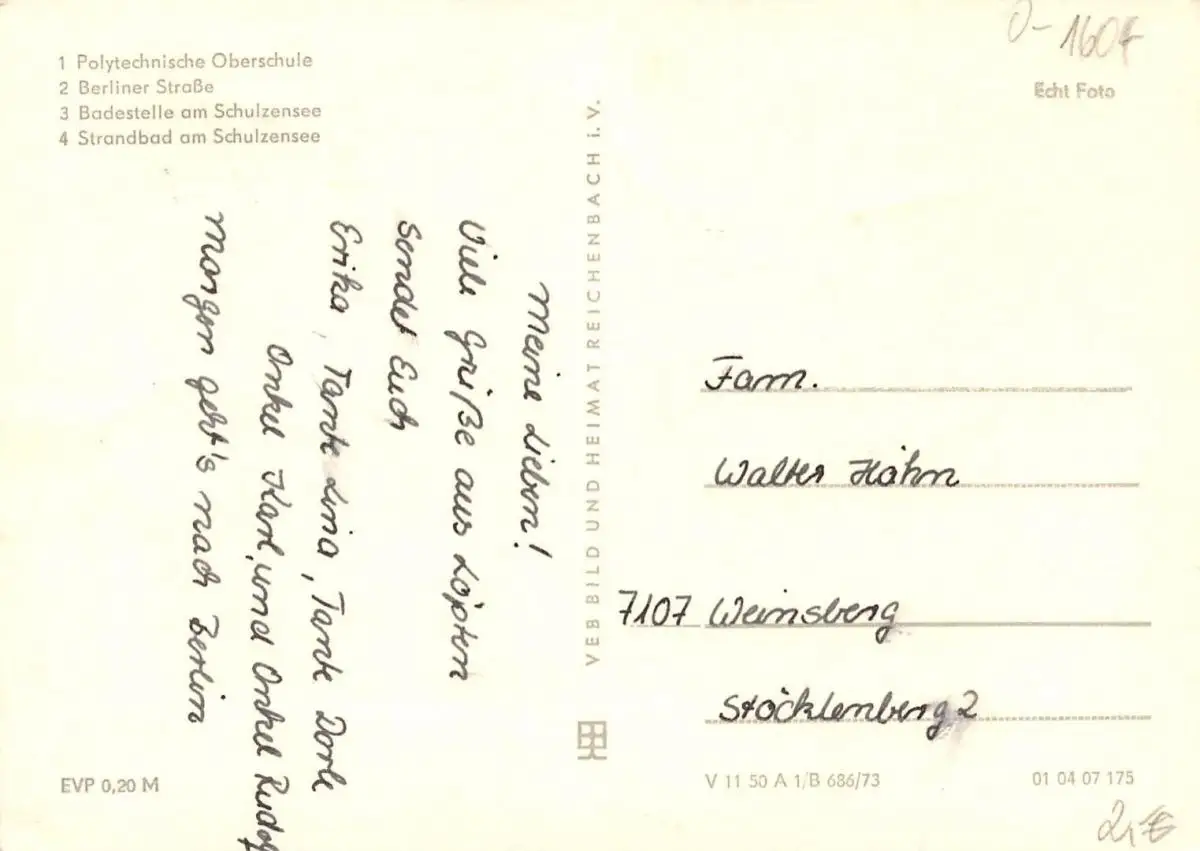 1 Polytechnische Oberschule
2 Berliner Straße
3 Badestelle am Schulzensee
4 Strandbad am Schulzensee
Meine Lieben!
Viele Grüße aus Löpten
sendet Euch
Erika, Tante Lina, Tante Dorle
Onkel Karl, und Onkel Rudolf
Morgen geht's nach Berlin
EVP 0,20 M
VEB BILD UND HEIMAT REICHENBACH i. V.
O-1607
Echt Foto
Fam.
Walter Höhn
7107 Weinsberg
Stöcklenberg 2
V 11 50 A 1/B 686/73
01 04 07 175
2,-€